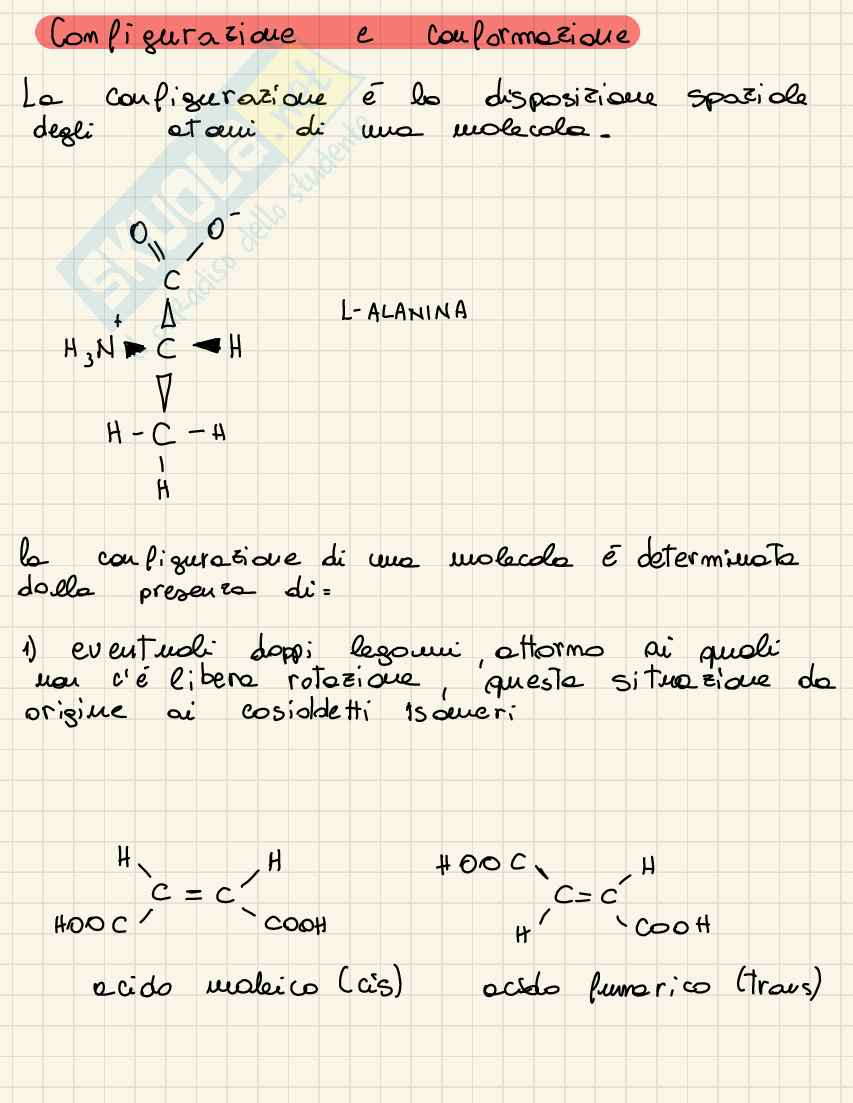 Configurazione e conformazione
La configurazione é la disposizione spaziale
degli atomi di una molecola.
SKUOLA.net
paradiso dello studente
O O⁻
C
H₃N⁺ C H
L-ALANINA
H-C-H
H
la configurazione di una molecola é determinata
dalla presenza di:
1) eventuali doppi legami, attorno ai quali
non c'é libera rotazione, questa situazione da
origine ai cosiddetti isomeri
H H
C=C
HOOC COOH
HOOC H
C=C
H COOH
acido maleico (cis) acido fumarico (trans)